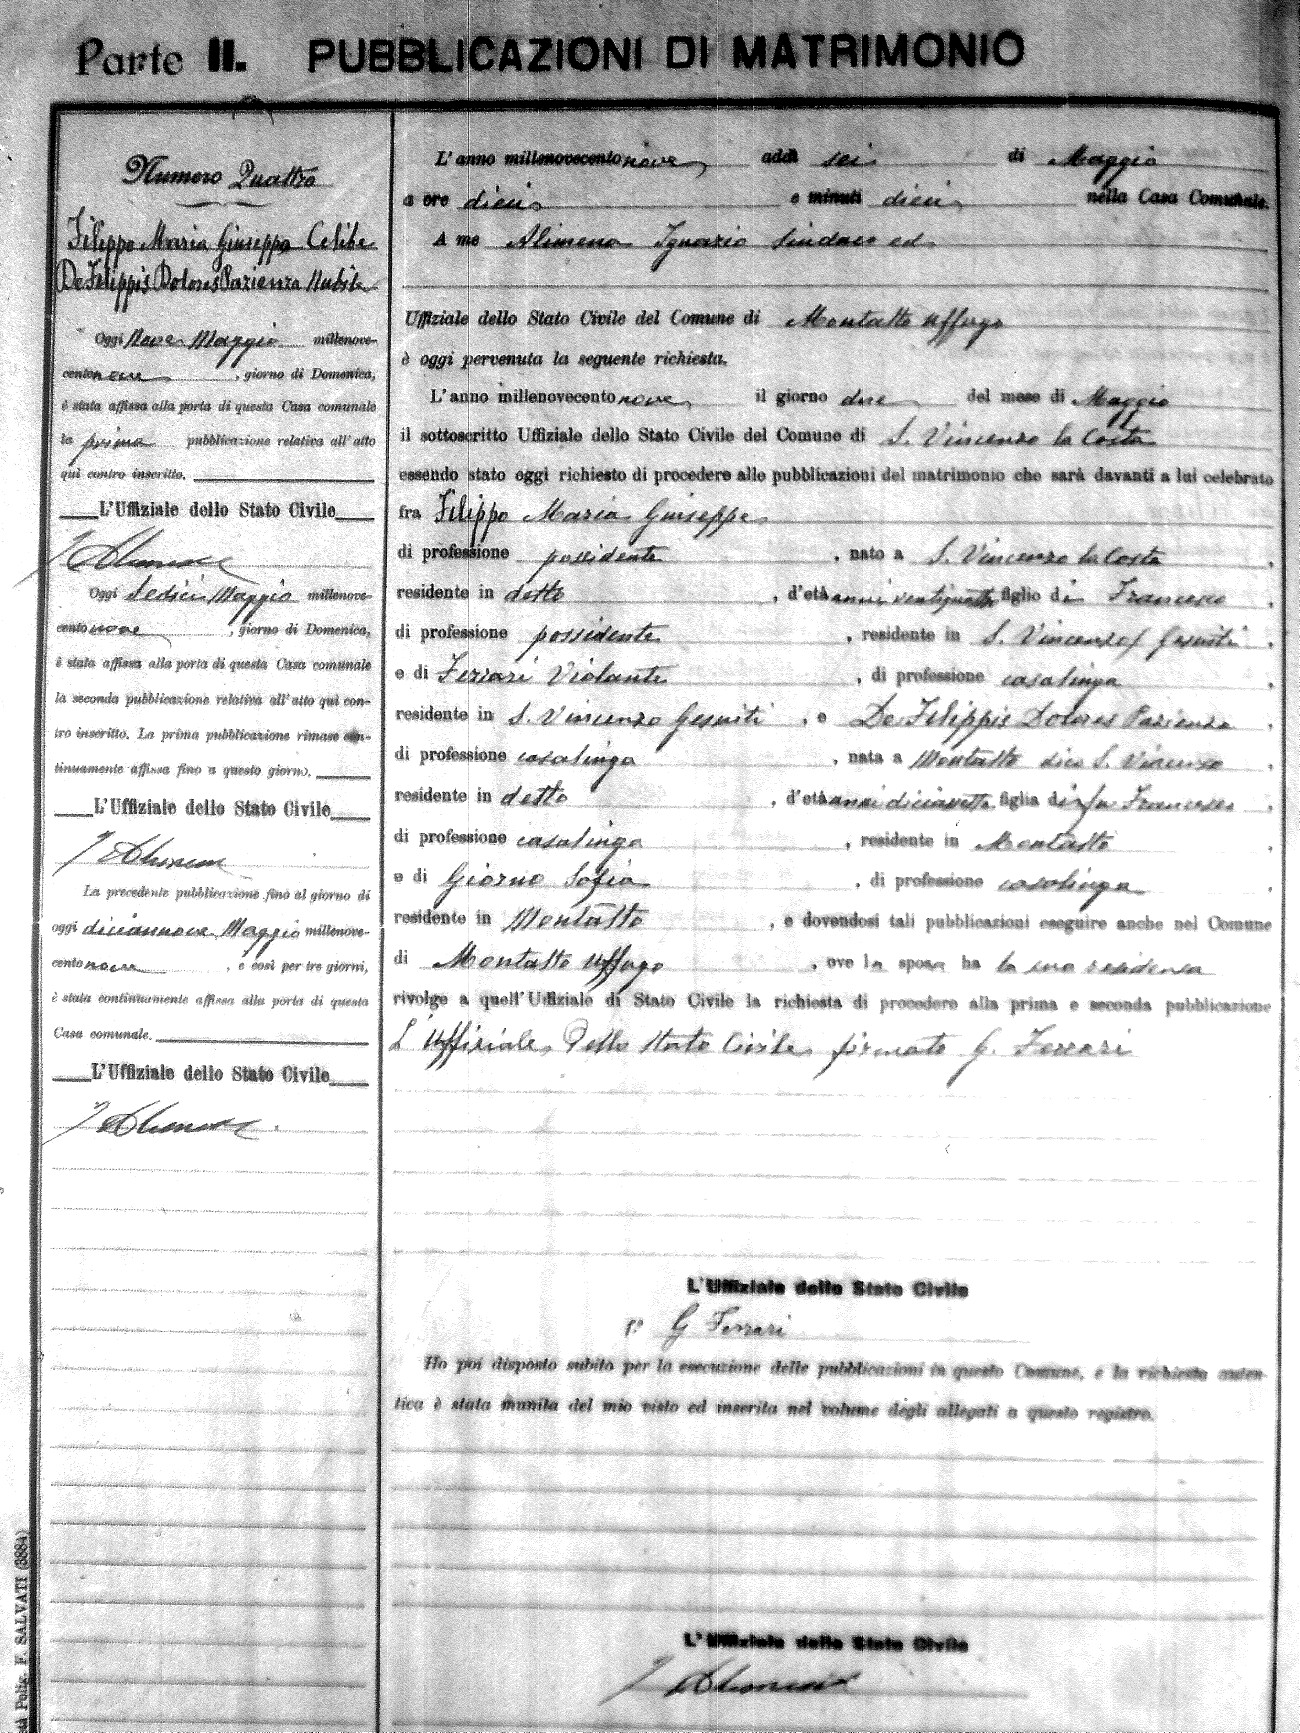 Parte II. PUBBLICAZIONI DI MATRIMONIO
Numero Quattro
Filippo Maria Giuseppe Celibe
De Filippis Dolores Pazienza Nubile
Oggi Nove Maggio millenove-
cento nove, giorno di Domenica,
è stata affissa alla porta di questa Casa comunale
la prima pubblicazione relativa all'atto
qui contro inscritto.
L'Uffiziale dello Stato Civile
Oggi Sedici Maggio millenove-
cento nove, giorno di Domenica,
è stata affissa alla porta di questa Casa comunale
la seconda pubblicazione relativa all'atto quì con-
tro inscritto. La prima pubblicazione rimase con-
tinuamente affissa fino a questo giorno.
L'Uffiziale dello Stato Civile
La precedente pubblicazione fino al giorno di
oggi diciannove Maggio millenove-
cento nove, e così per tre giorni,
è stata continuamente affissa alla porta di questa
Casa comunale.
L'Uffiziale dello Stato Civile
L'anno millenovecento nove addì sei di Maggio
a ore dieci e minuti dieci nella Casa Comunale.
A me Alimena Ignazio Sindaco ed
Uffiziale dello Stato Civile del Comune di Montalto Uffugo
è oggi pervenuta la seguente richiesta.
L'anno millenovecento nove il giorno due del mese di Maggio
il sottoscritto Uffiziale dello Stato Civile del Comune di S. Vincenzo la Costa
essendo stato oggi richiesto di procedere alle pubblicazioni del matrimonio che sarà davanti a lui celebrato
fra Filippo Maria Giuseppe
di professione possidente, nato a S. Vincenzo la Costa,
residente in detto, d'età anni figlio di Francesco,
di professione possidente, residente in S. Vincenzo Gesuiti.
e di Ferrari Violante, di professione casalinga,
residente in S. Vincenzo Gesuiti, e De Filippis Dolores Pazienza,
di professione casalinga, nata a Montalto S. Vincenzo,
residente in detto, d'età anni diciasette figlia di fu Francesco,
di professione casalinga, residente in Montalto,
e di Giorno Sofia, di professione casalinga,
residente in Montalto, e dovendosi tali pubblicazioni eseguire anche nel Comune
di Montalto Uffugo, ove la sposa ha la sua residenza
rivolge a quell'Uffiziale di Stato Civile la richiesta di procedere alla prima e seconda pubblicazione
L'Uffiziale Dello Stato Civile firmato G. Ferrari
L'Uffiziale dello Stato Civile
G Ferrari
Ho poi disposto subito per la esecuzione delle pubblicazioni in questo Comune, e la richiesta auten-
tica è stata munita del mio visto ed inserita nel volume degli allegati a questo registro.
L'Uffiziale dello Stato Civile
Polig. F. SALVATI (3884)